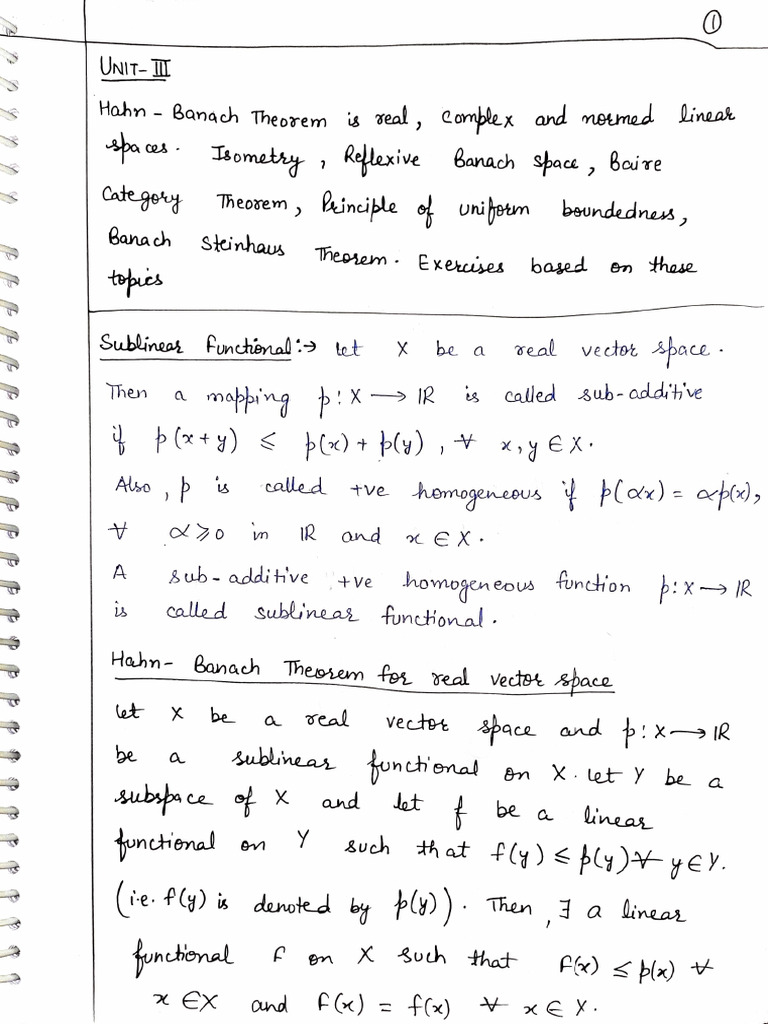 ①
UNIT-III
Hahn-Banach Theorem is real, complex and normed linear
spaces. Isometry, Reflexive Banach space, Baire
Category Theorem, Principle of uniform boundedness,
Banach Steinhaus Theorem. Exercises based on these
topics
Sublinear Functional:→ Let X be a real vector space.
Then a mapping p: X → IR is called sub-additive
if p(x+y) ≤ p(x) + p(y), ∀ x, y ∈ X.
Also, p is called +ve homogeneous if p(αx) = αp(x),
∀ α ≥ 0 in IR and x ∈ X.
A sub-additive +ve homogeneous function p: X → IR
is called sublinear functional.
Hahn-Banach Theorem for real vector space
Let X be a real vector space and p: X → IR
be a sublinear functional on X. Let Y be a
subspace of X and let f be a linear
functional on Y such that f(y) ≤ p(y) ∀ y ∈ Y.
(i.e. f(y) is denoted by p(y)). Then, ∃ a linear
functional F on X such that F(x) ≤ p(x) ∀
x ∈ X and F(x) = f(x) ∀ x ∈ X.